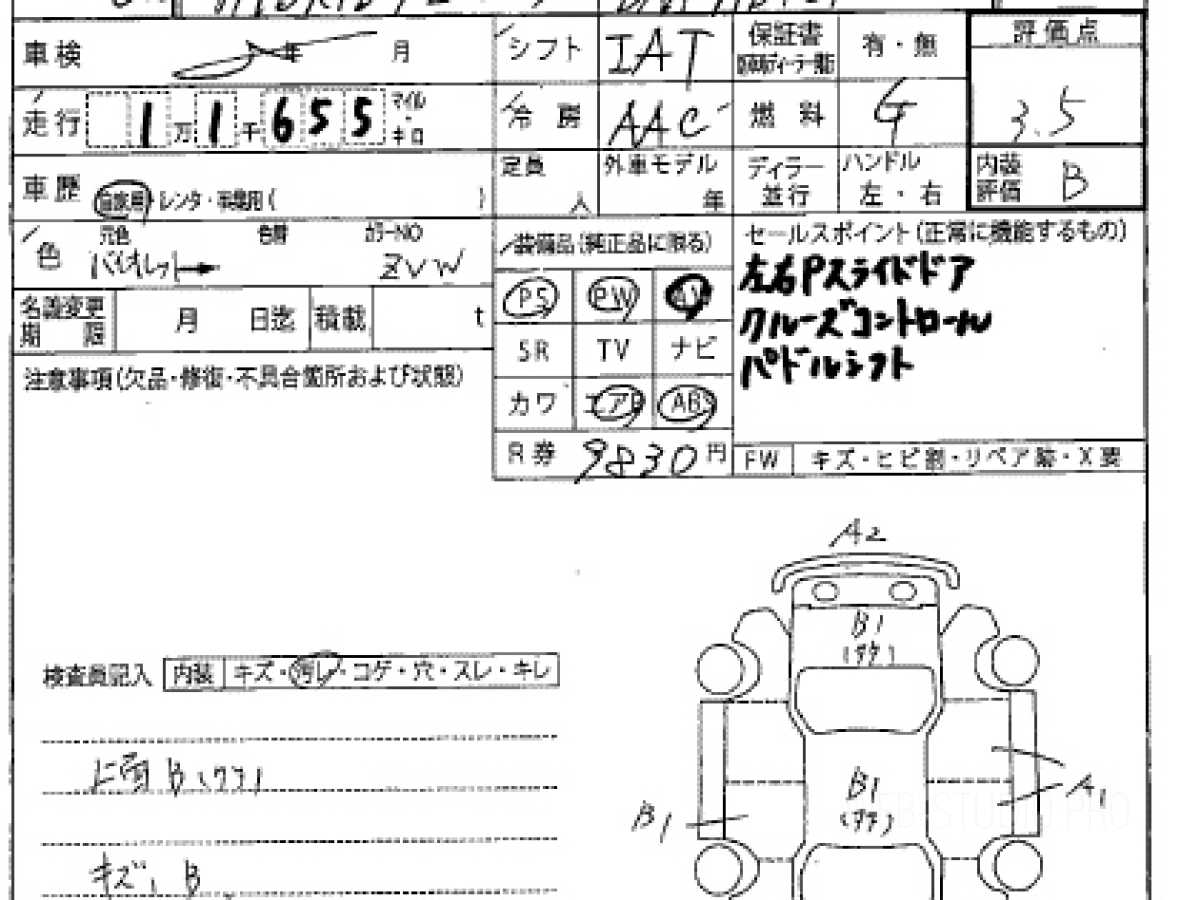 車検 年 月
シフト IAT
保証書 有・無
評価点 3.5
走行 1万1千655 マイル・キロ
冷房 AAC
燃料 G
車歴 自家用・レンタ・事業用( )
定員 人
外車モデル 年
ディラー 並行
ハンドル 左・右
内装評価 B
色 元色 色替 カラーNO
バイオレット ZVW
装備品(純正品に限る)
PS PW AW
SR TV ナビ
カワ エアB ABS
R券 9830円
セールスポイント(正常に機能するもの)
左右Pスライドドア
クルーズコントロール
パドルシフト
名義変更期限 月 日迄 積載 t
注意事項(欠品・修復・不具合箇所および状態)
FW キズ・ヒビ割・リペア跡・X要
A2
B1
検査員記入 内装 キズ・汚レ・コゲ・穴・スレ・キレ
上面 B
B1
A1
B1
キズ、B